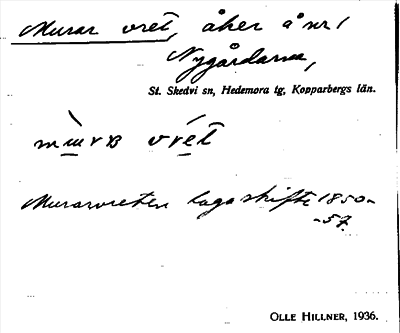 Murar vret, åker å nr 1
Nygårdarna,
St. Skedvi sn, Hedemora tg, Kopparbergs län.
Murarvreten laga skifte 1850-
-57.
OLLE HILLNER, 1936.